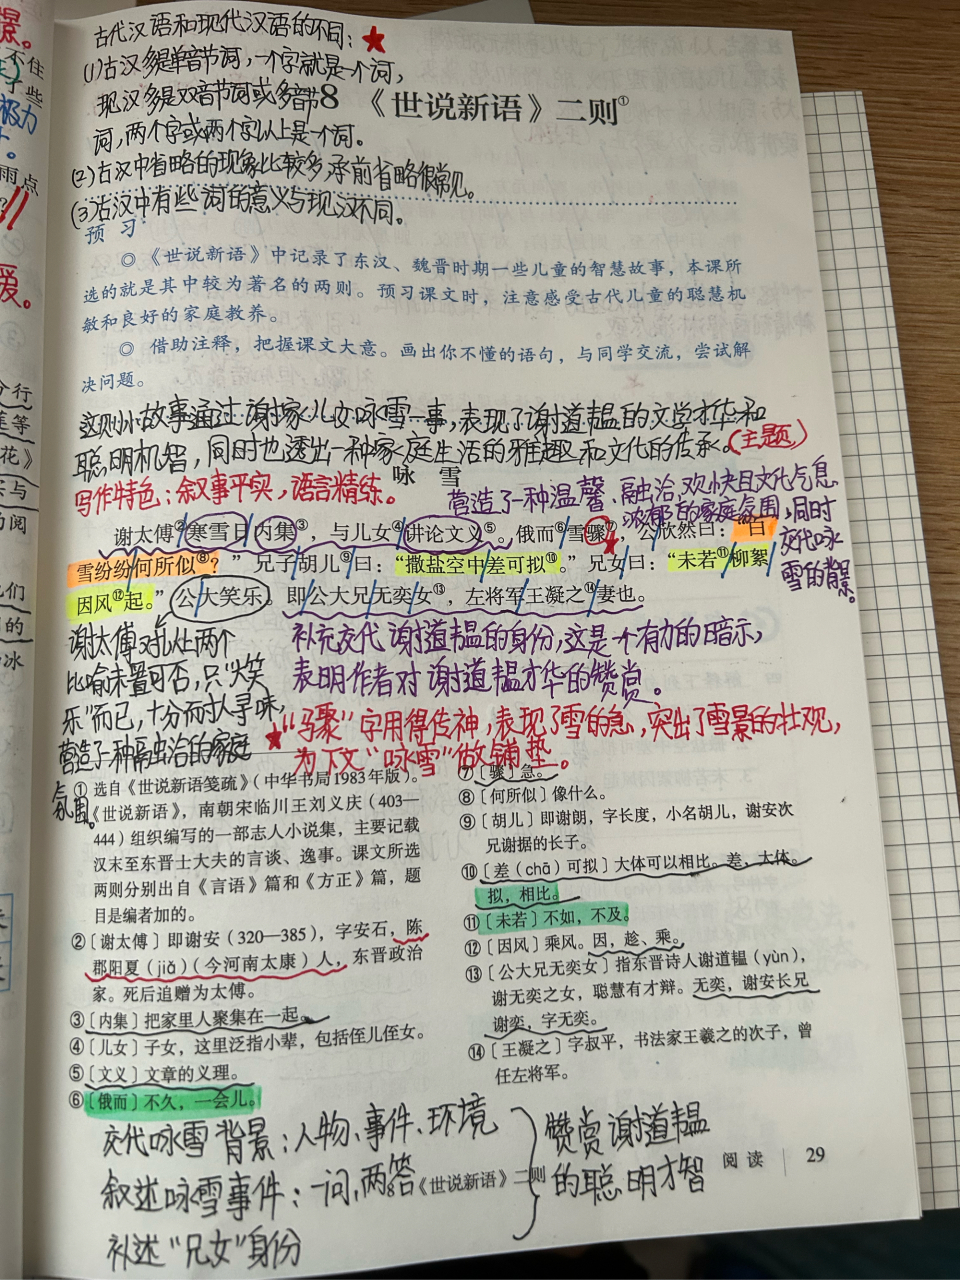 古代汉语和现代汉语的不同：
(1)古汉多是单音节词，一个字就是一个词，
现汉多是双音节词或多音节
词，两个字或两个字以上是一个词。
(2)古汉中省略的现象比较多，承前省略很常见。
(3)古汉中有些词的意义与现汉不同。
8 《世说新语》二则①
预 习
◎ 《世说新语》中记录了东汉、魏晋时期一些儿童的智慧故事，本课所
选的就是其中较为著名的两则。预习课文时，注意感受古代儿童的聪慧机
敏和良好的家庭教养。
◎ 借助注释，把握课文大意。画出你不懂的语句，与同学交流，尝试解
决问题。
这则小故事通过谢家儿女咏雪一事，表现了谢道韫的文学才华和
聪明机智，同时也透出一种家庭生活的雅趣和文化的传承。(主题)
咏 雪
写作特色：叙事平实，语言精练。
营造了一种温馨、融洽，欢快且文化气息
浓郁的家庭氛围，同时
交代咏
雪的背景。
谢太傅②寒雪日内集③，与儿女④讲论文义⑤。俄而⑥雪骤⑦，公欣然曰：“白
雪纷纷何所似⑧？”兄子胡儿⑨曰：“撒盐空中差可拟⑩。”兄女曰：“未若⑪柳絮
因风⑫起。”公大笑乐。即公大兄无奕女⑬，左将军王凝之⑭妻也。
谢太傅对此两个
比喻未置可否，只“大笑
乐”而已，十分耐人寻味，
营造了一种融洽的家庭
氛围。
补充交代谢道韫的身份，这是一个有力的暗示，
表明作者对谢道韫才华的赞赏。
“骤”字用得传神，表现了雪的急，突出了雪景的壮观，
为下文“咏雪”做铺垫。
① 选自《世说新语笺疏》（中华书局1983年版）。
《世说新语》，南朝宋临川王刘义庆（403—
444）组织编写的一部志人小说集，主要记载
汉末至东晋士大夫的言谈、逸事。课文所选
两则分别出自《言语》篇和《方正》篇，题
目是编者加的。
②〔谢太傅〕即谢安（320—385），字安石，陈
郡阳夏（jiǎ）（今河南太康）人，东晋政治
家。死后追赠为太傅。
③〔内集〕把家里人聚集在一起。
④〔儿女〕子女，这里泛指小辈，包括侄儿侄女。
⑤〔文义〕文章的义理。
⑥〔俄而〕不久，一会儿。
⑦〔骤〕急。
⑧〔何所似〕像什么。
⑨〔胡儿〕即谢朗，字长度，小名胡儿，谢安次
兄谢据的长子。
⑩〔差（chā）可拟〕大体可以相比。差，大体。
拟，相比。
⑪〔未若〕不如，不及。
⑫〔因风〕乘风。因，趁、乘。
⑬〔公大兄无奕女〕指东晋诗人谢道韫（yùn），
谢无奕之女，聪慧有才辩。无奕，谢安长兄
谢奕，字无奕。
⑭〔王凝之〕字叔平，书法家王羲之的次子，曾
任左将军。
交代咏雪背景：人物、事件、环境
叙述咏雪事件：一问，两答
补述“兄女”身份
赞赏谢道韫
的聪明才智
8 《世说新语》二则
阅 读 29